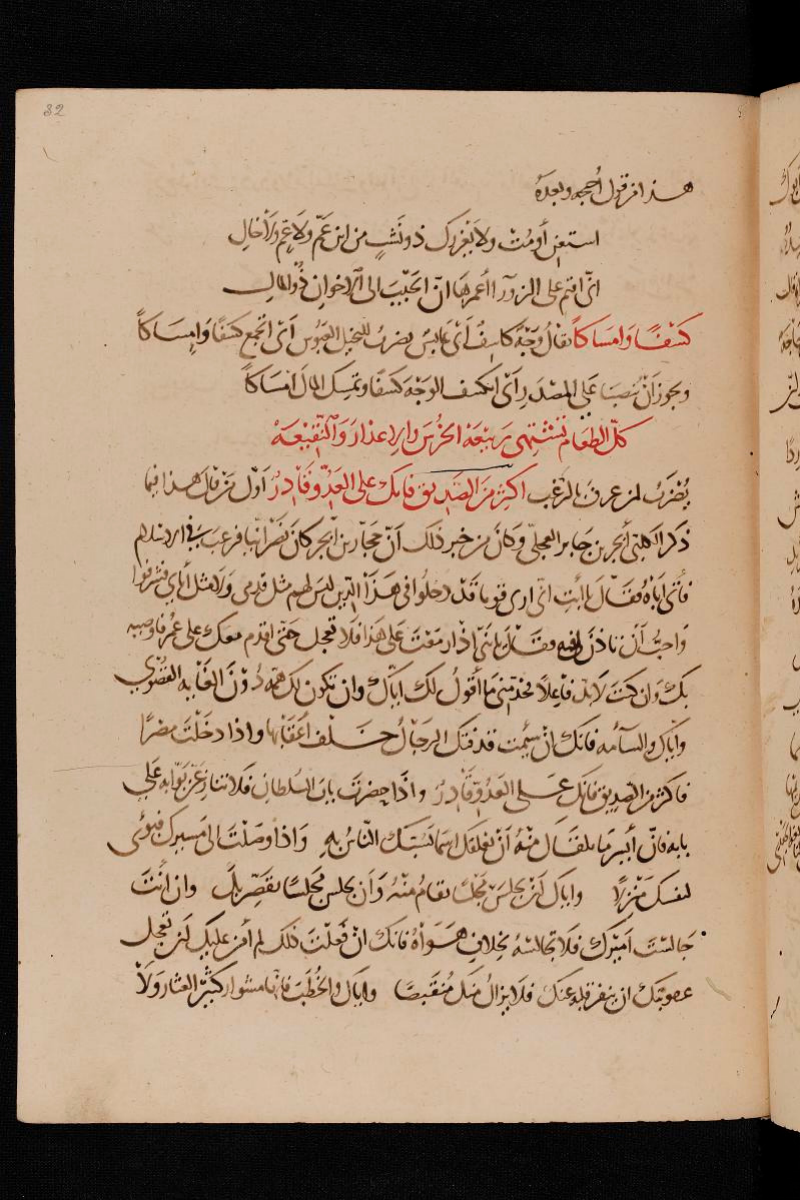 32
هذا من قول أحيحة وبعده
استغن أو مت ولا يغررك ذو نشب من ابن عم ولا عم ولا خال
انى اقيم على الزوراء اعمرها ان الحبيب الى الاخوان ذو المال
كسفا وامساكا يقال وجه كاسف أى عابس يضرب للبخيل العبوس أى اتجمع كسفا وامساكا
ويجوز أن نصبا على المصدر أى اتكسف الوجه كسفا وتمسك المال امساكا
كل الطعام تشتهى ربيعة الخرس والاعذار والنقيعة
يضرب لمن عرف بالرغب اكثر من الصديق فانك على العدو قادر اول من قال هذا فيما
ذكر الكلبى أبجر بن جابر العجلى وكان من خبر ذلك أن حجار بن أبجر كان نصرانيا فرغب فى الاسلام
فأتى اباه فقال يا أبت انى ارى قوما قد دخلوا فى هذا الدين ليس لهم مثل قدمى ولا مثل أباى فشرفوا
واحب أن تاذن لى فيه فقال يا بنى اذا ازمعت على هذا فلا تعجل حتى اقدم معك على عمر فاوصيه
بك وان كنت لا بد فاعلا فخذ منى ما أقول لك اياك وان تكون لك همة دون الغاية القصوى
واياك والسآمة فانك ان سئمت قذفتك الرجال خلف اعقابها واذا دخلت مصرا
فاكثر من الصديق فانك على العدو قادر واذا حضرت باب السلطان فلا تنازعن بوابه على
بابه فان أيسر ما يلقاك منه أن يعلقك اسما يسبك الناس به واذا وصلت الى اميرك فبوئ
لنفسك منزلا واياك أن تجلس مجلسا تقام منه وأن تجلس مجلسا يقصر بك وان أنت
جالست اميرك فلا تجالسه بخلاف هواه فانك ان فعلت ذلك لم آمن عليك ان تعجل
عقوبتك ان ينفر قلبه عنك فلا يزال منك منقبضا واياك والخطب فانها مشوار كثير العثار ولا